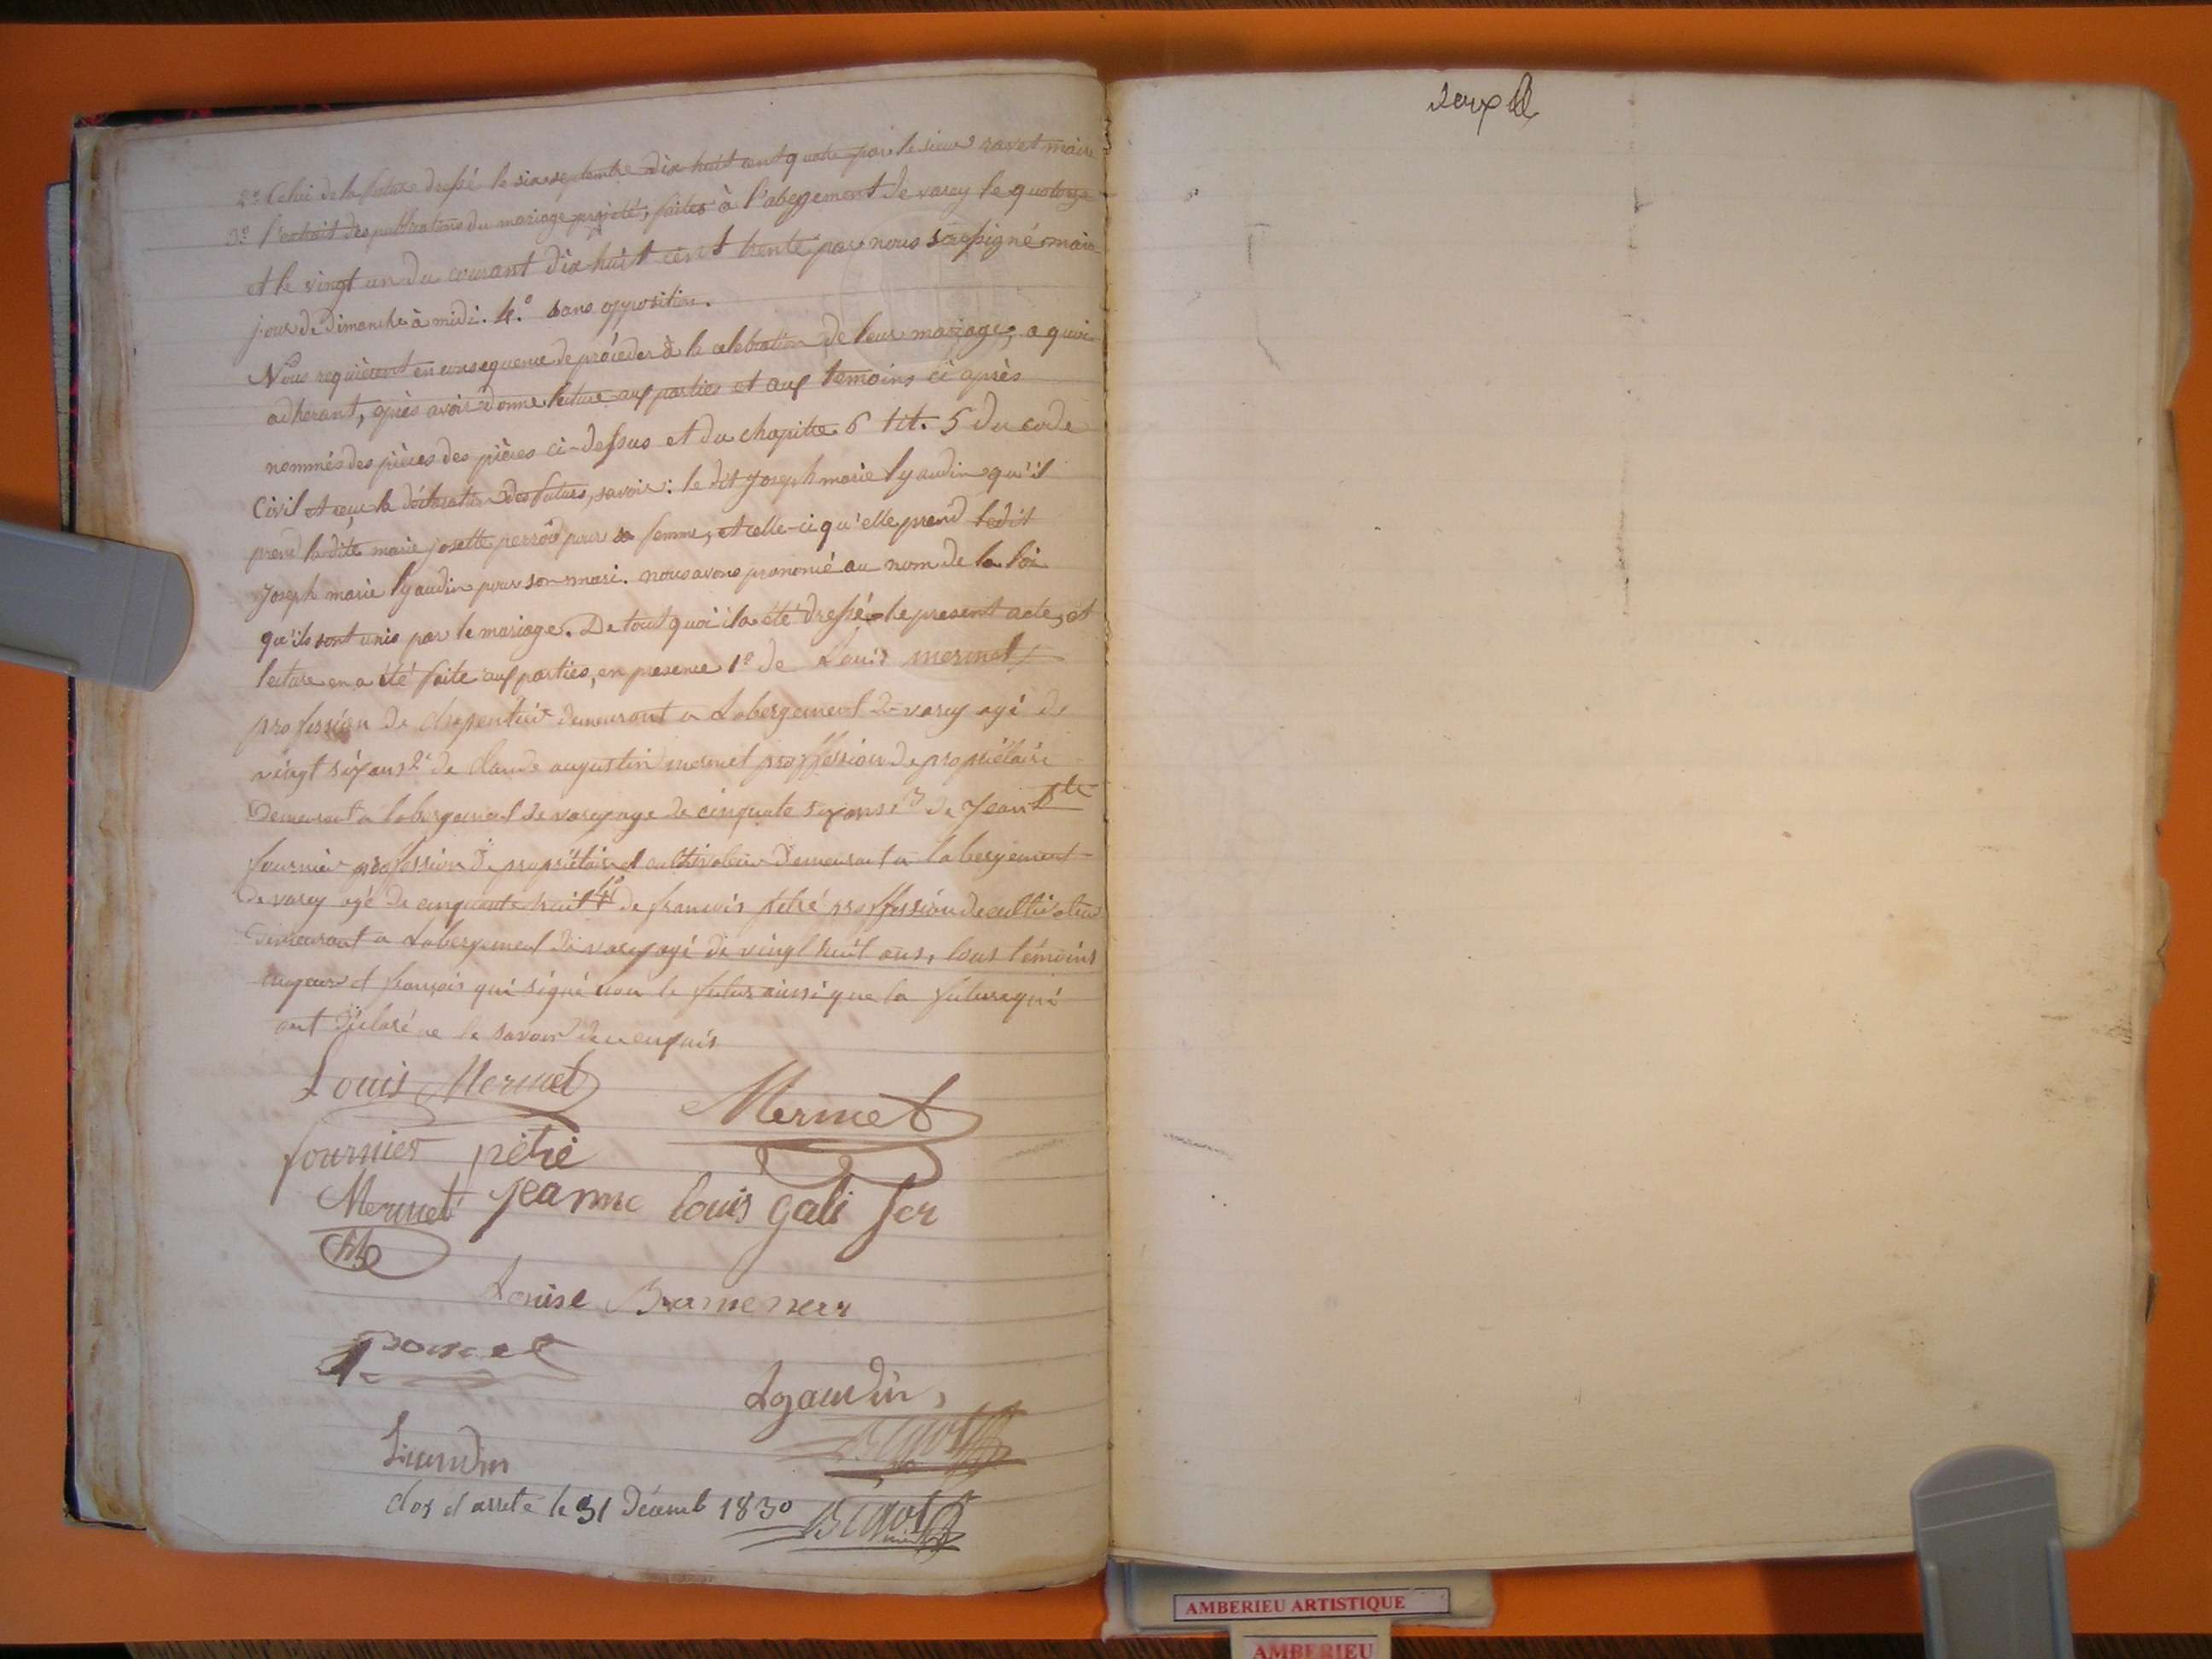 2.º Celui de la future dressé le six septembre dix huit cent quatre par le sieur ravet maire
3.º l'extrait des publications du mariage projeté, faites à l'abergement de varey le quatorze
et le vingt un du courant dix huit cent trente par nous soussigné maire
jour de Dimanche à midi. 4.º sans opposition.
Nous requièrent en consequence de procéder à la celebration de leur mariage; a quoi
adherant, après avoir donné lecture aux parties et aux temoins ci après
nommés des pièces des pièces ci-dessus et du chapitre 6 tit. 5 du code
Civil et reçu la déclaration des futurs, savoir: le dit Joseph marie lyaudin qu'il
prend la dite marie josette perrod pour sa femme, et celle-ci qu'elle prend ledit
Joseph marie lyaudin pour son mari. nous avons prononcé au nom de la loi
qu'ils sont unis par le mariage. De tout quoi il a été dressé le present acte, et
lecture en a été faite aux parties, en presence 1º de Louis mermet
profession de charpentier demeurant a Labergement de varey agé de
vingt six ans 2º de claude augustin mermet proffession de propriétaire
demeurant a labergement de varey age de cinquate six ans 3 de Jean Bte
fournier profession de propriétaire et cultivateur demeurant a labergement
de varey agé de cinquante huit 4º de francois pétré proffession de cultivateur
demeurant a Labergement de varey agé de vingt huit ans, tous témoins
majeurs et français qui signé non le futur ainsi que la future qui
ont déclaré ne le savoir de ce enquis
Louis Mermet
Mermet
fournier pétré
Mermet Jeanne louis gali fer
Louise
Lyaudin
Bigot
Liaudin
clos et arreté le 31 Décemb 1830 Bigot
AMBERIEU ARTISTIQUE
AMBERIEU